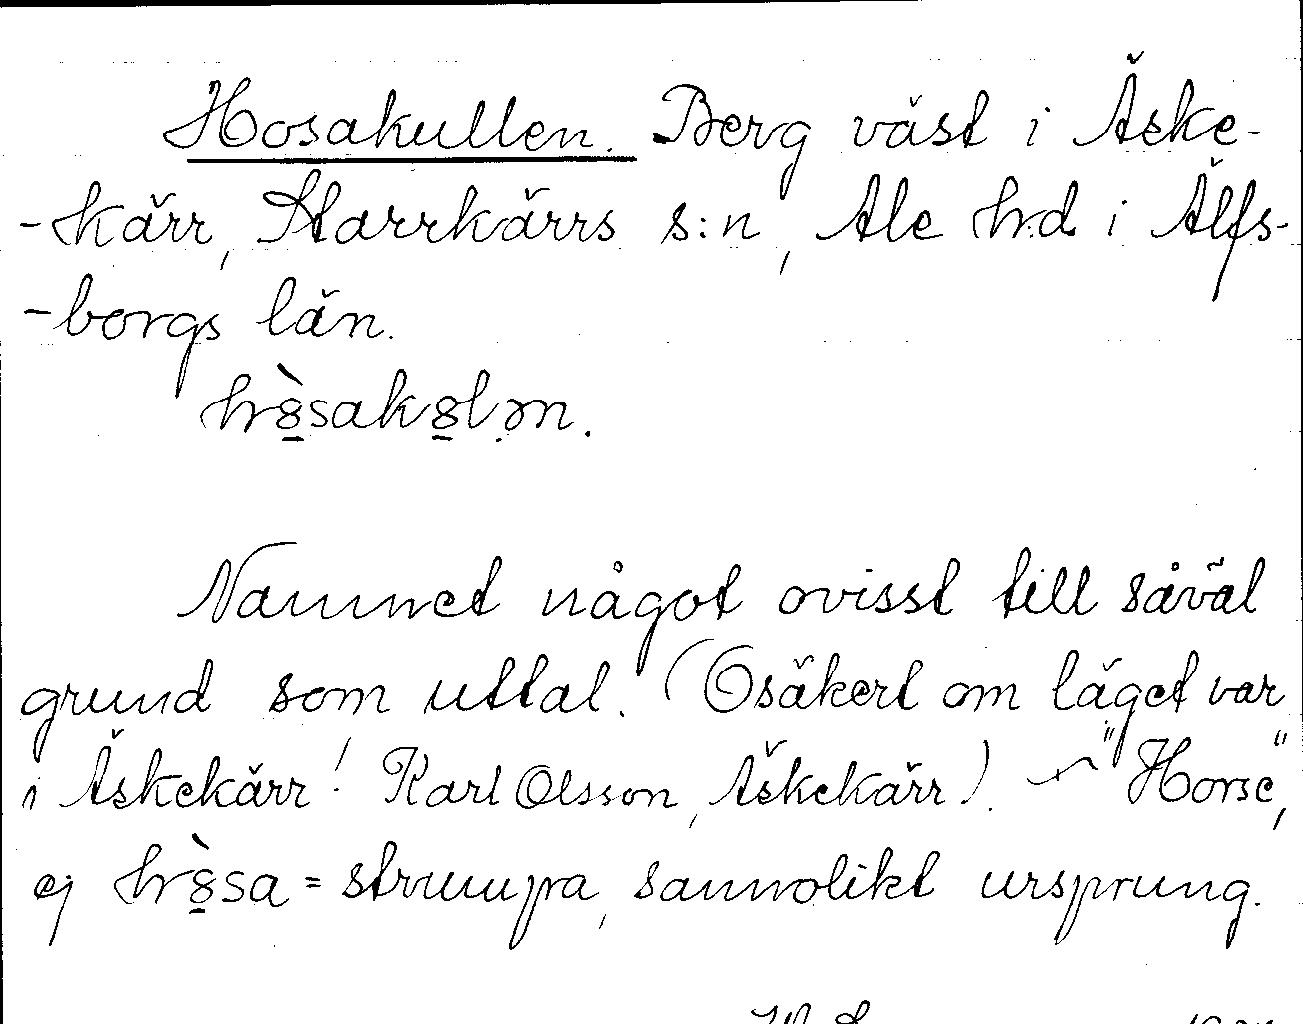 Hosakullen. Berg väst i Äske-
-kärr, Starrkärrs s:n, Ale hd i Älfs-
-borgs län.
hò̱sako̱l.ən.
Namnet något ovisst till såväl
grund som uttal. (Osäkert om läget var
i Äskekärr! Karl Olsson, Äskekärr). — "Horse",
ej hò̱sa = strumpa, sannolikt ursprung.